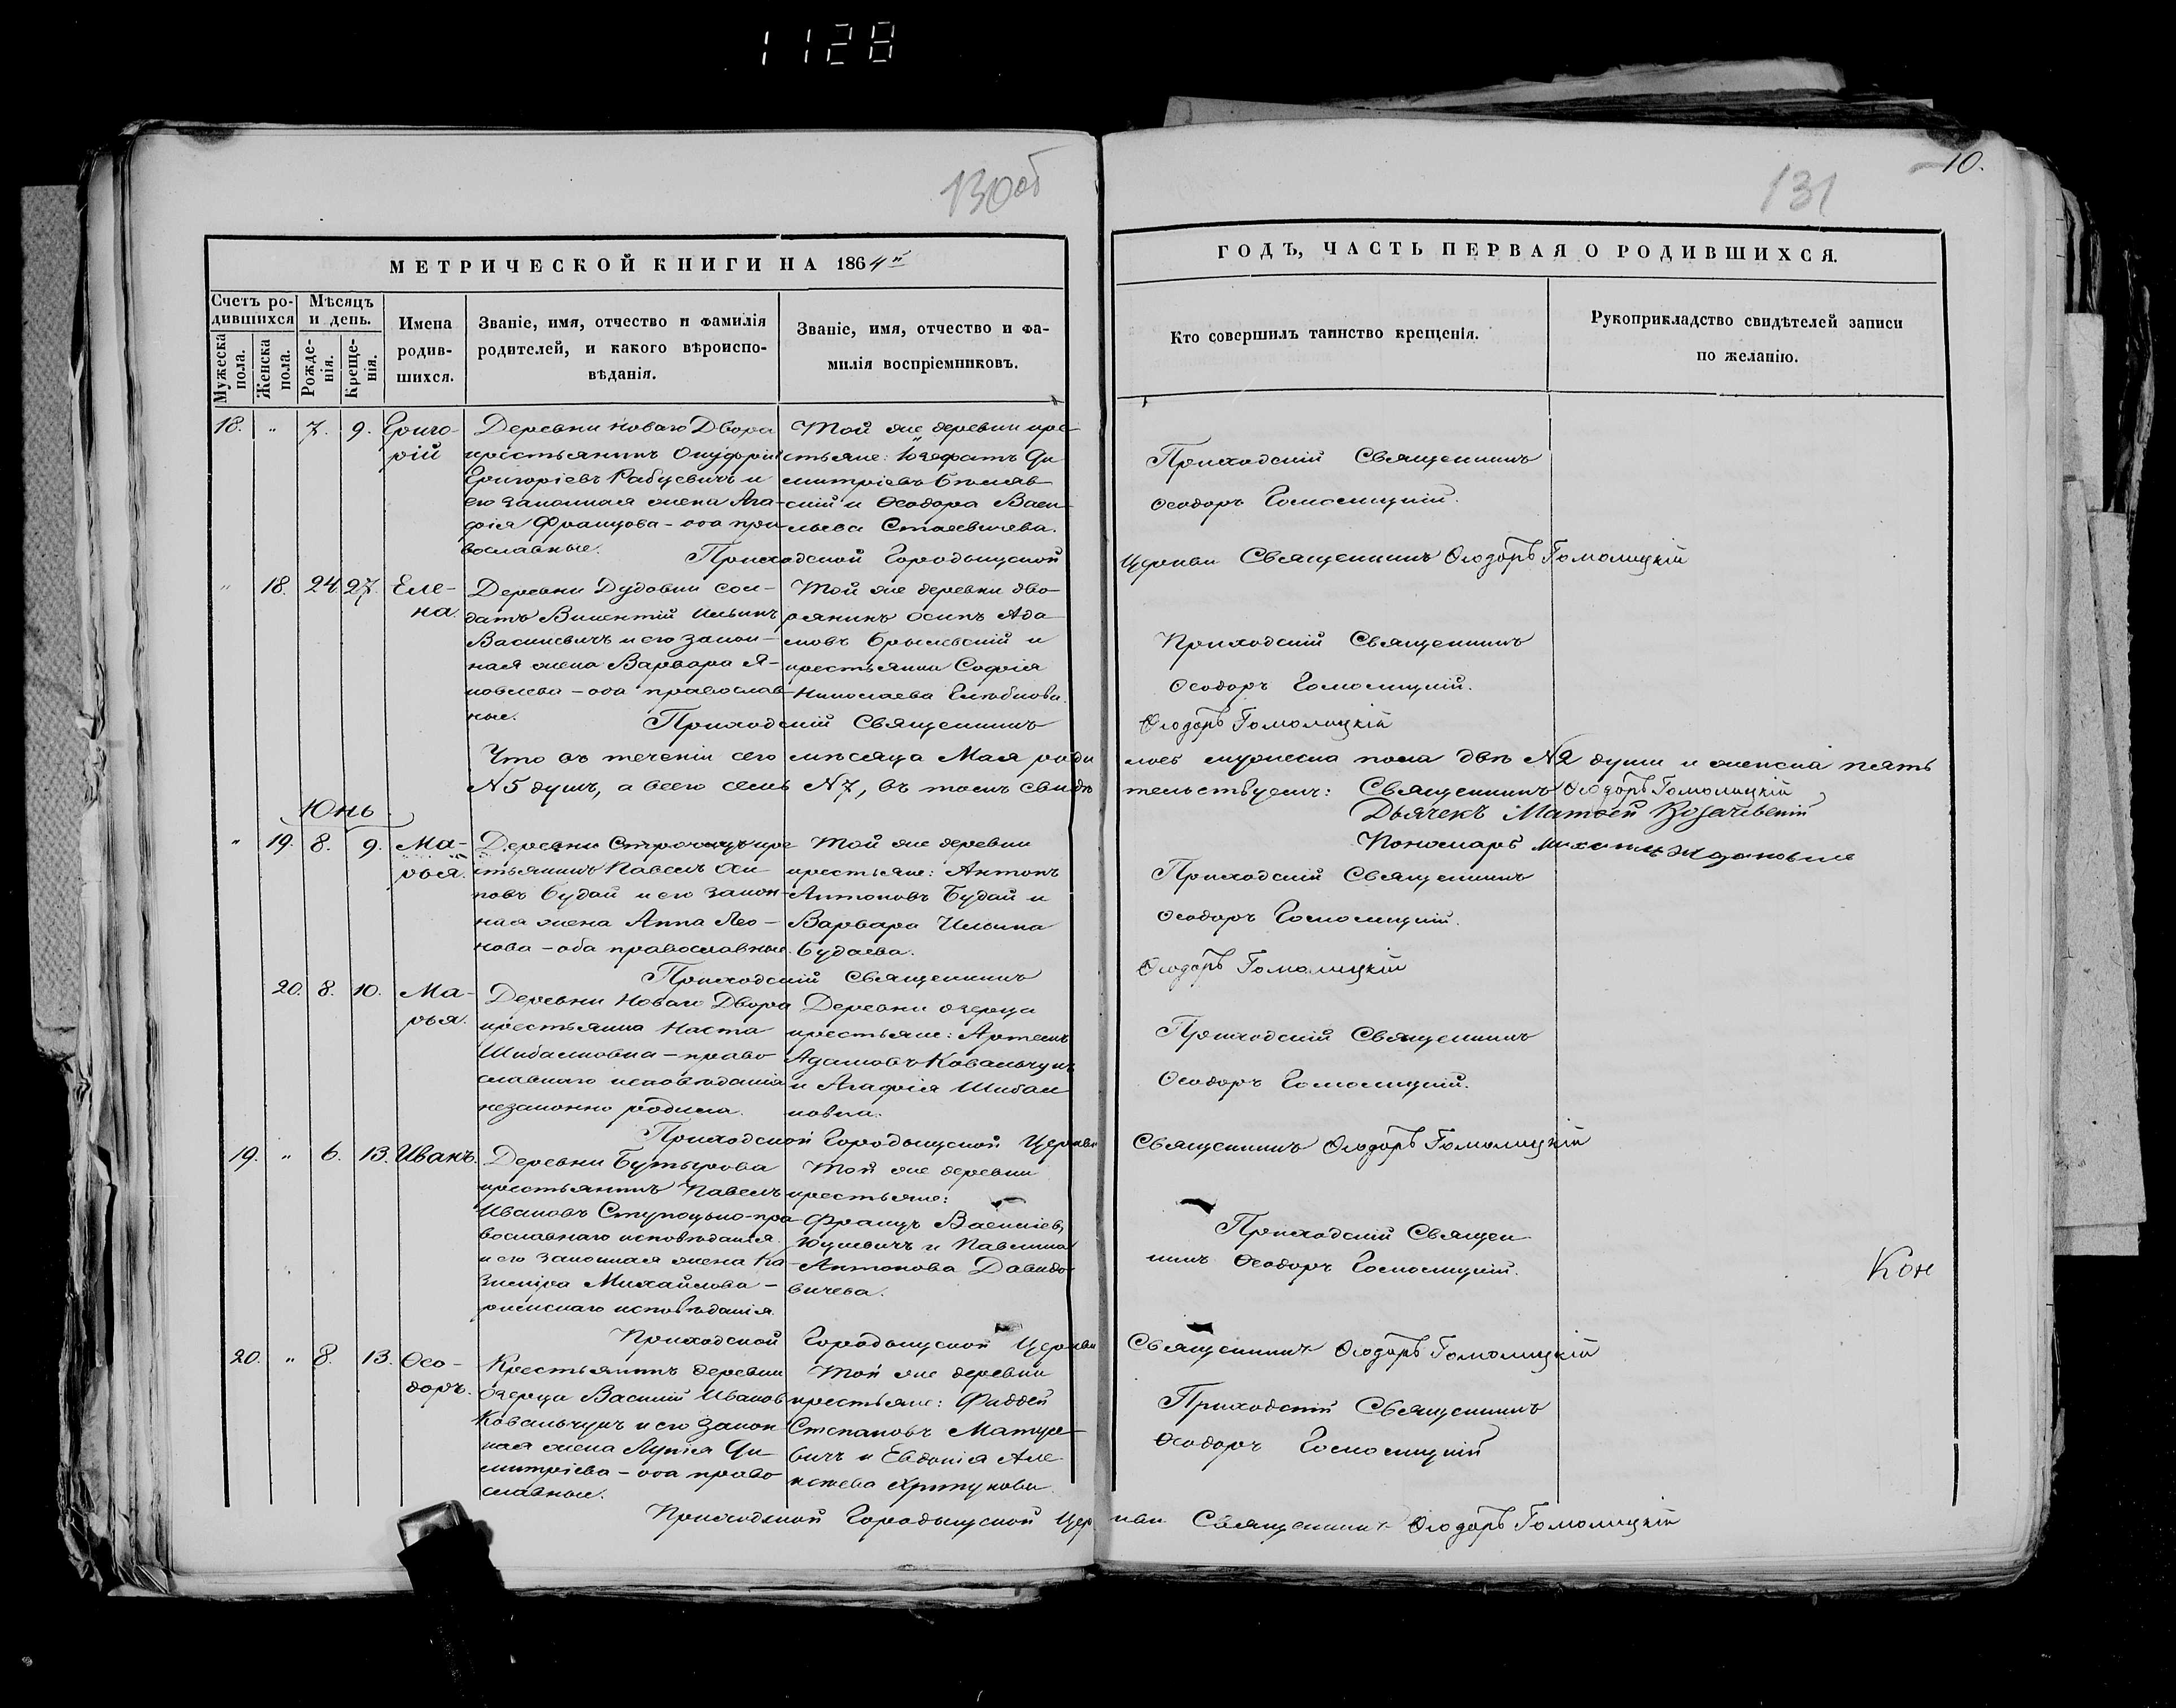 1128
130 об
131
10.
МЕТРИЧЕСКОЙ КНИГИ НА 1864й
ГОДЪ, ЧАСТЬ ПЕРВАЯ О РОДИВШИХСЯ.
Счетъ ро-
дившихся
Мужеска
пола.
Женска
пола.
Мѣсяцъ
и день.
Рожде-
нія.
Креще-
нія.
Имена
родив-
шихся.
Званіе, имя, отчество и фамилія
родителей, и какого вѣроиспо-
вѣданія.
Званіе, имя, отчество и фа-
милія воспріемниковъ.
Кто совершилъ таинство крещенія.
Рукоприкладство свидѣтелей записи
по желанію.
18. " 7. 9. Григо-
рій
Деревни Новаго Двора
крестьянинъ Онуфрій
Григоріевъ Рабцевичъ и
его законная жена Ага-
фія Францова – оба пра
вославные.
Той же деревни кре
стьяне: Іозефатъ Ди
митріевъ
и Ѳеодора Васи
льева Стасевичева.
Приходскій Священникъ
Ѳеодоръ Гомолицкій.
Приходской Городыщской Церкви Священникъ Ѳеодоръ Гомолицкій
" 18. 24. 27. Еле-
на.
Деревни Дудовки сол-
датъ Викентій Ильинъ
Василевичъ и его закон-
ная жена Варвара Я-
ковлева – оба православ
ные.
Той же деревни дво-
рянинъ Осипъ Ада
мовъ Брылевскій и
крестьянка Софія
Николаева
Приходскій Священникъ
Ѳеодоръ Гомолицкій.
Приходскій Священникъ Ѳеодоръ Гомолицкій
Что въ теченіи сего мѣсяца Мая роди лось мужеска пола двѣ №2 души и женска пять
№5 душъ, а всего семь №7, въ томъ свидѣ тельствуемъ: Священникъ Ѳеодоръ Гомолицкій
Дьячекъ Матѳей
Пономарь
Юнь
" 19. 8. 9. Ма-
рья.
Деревни Строчицъ кре
стьянинъ Павелъ Оси
повъ Будай и его закон-
ная жена Анна Лео-
нова – оба православные.
Той же деревни
крестьяне: Антонъ
Антоновъ Будай и
Варвара Ильина
Будаева.
Приходскій Священникъ
Ѳеодоръ Гомолицкій.
Приходскій Священникъ Ѳеодоръ Гомолицкій
20. 8. 10. Ма-
рья.
Деревни Новаго Двора
крестьянка Наста
Шибалковна – право
славнаго исповѣданія
незаконно родила.
Деревни Озерца
крестьяне: Артемъ
Адамовъ Ковальчукъ
и Агафія Шибал
ковна.
Приходскій Священникъ
Ѳеодоръ Гомолицкій.
Приходской Городыщской Церкви Священникъ Ѳеодоръ Гомолицкій
19. " 6. 13. Иванъ.
Деревни Бутырова
крестьянинъ Павелъ
Ивановъ – пра
вославнаго исповѣданія
и его законная жена Ка
зиміра Михайлова –
римскаго исповѣданія.
Той же деревни
крестьяне:
Францъ Василіевъ
Юцкевичъ и Павлина
Антонова Давидо
вичева.
Приходскій Священ
никъ Ѳеодоръ Гомолицкій.
Кон
Приходской Городыщской Церкви Священникъ Ѳеодоръ Гомолицкій
20. " 8. 13. Ѳео-
доръ.
Крестьянинъ деревни
Озерца Василій Ивановъ
Ковальчукъ и его закон
ная жена Лукія Ди
митріева – оба право
славные.
Той же деревни
крестьяне: Фаддей
Степановъ Мацке
вичъ и Евдокія Але
ксѣева
Приходскій Священникъ
Ѳеодоръ Гомолицкій
Приходской Городыщской Церкви Священникъ Ѳеодоръ Гомолицкій